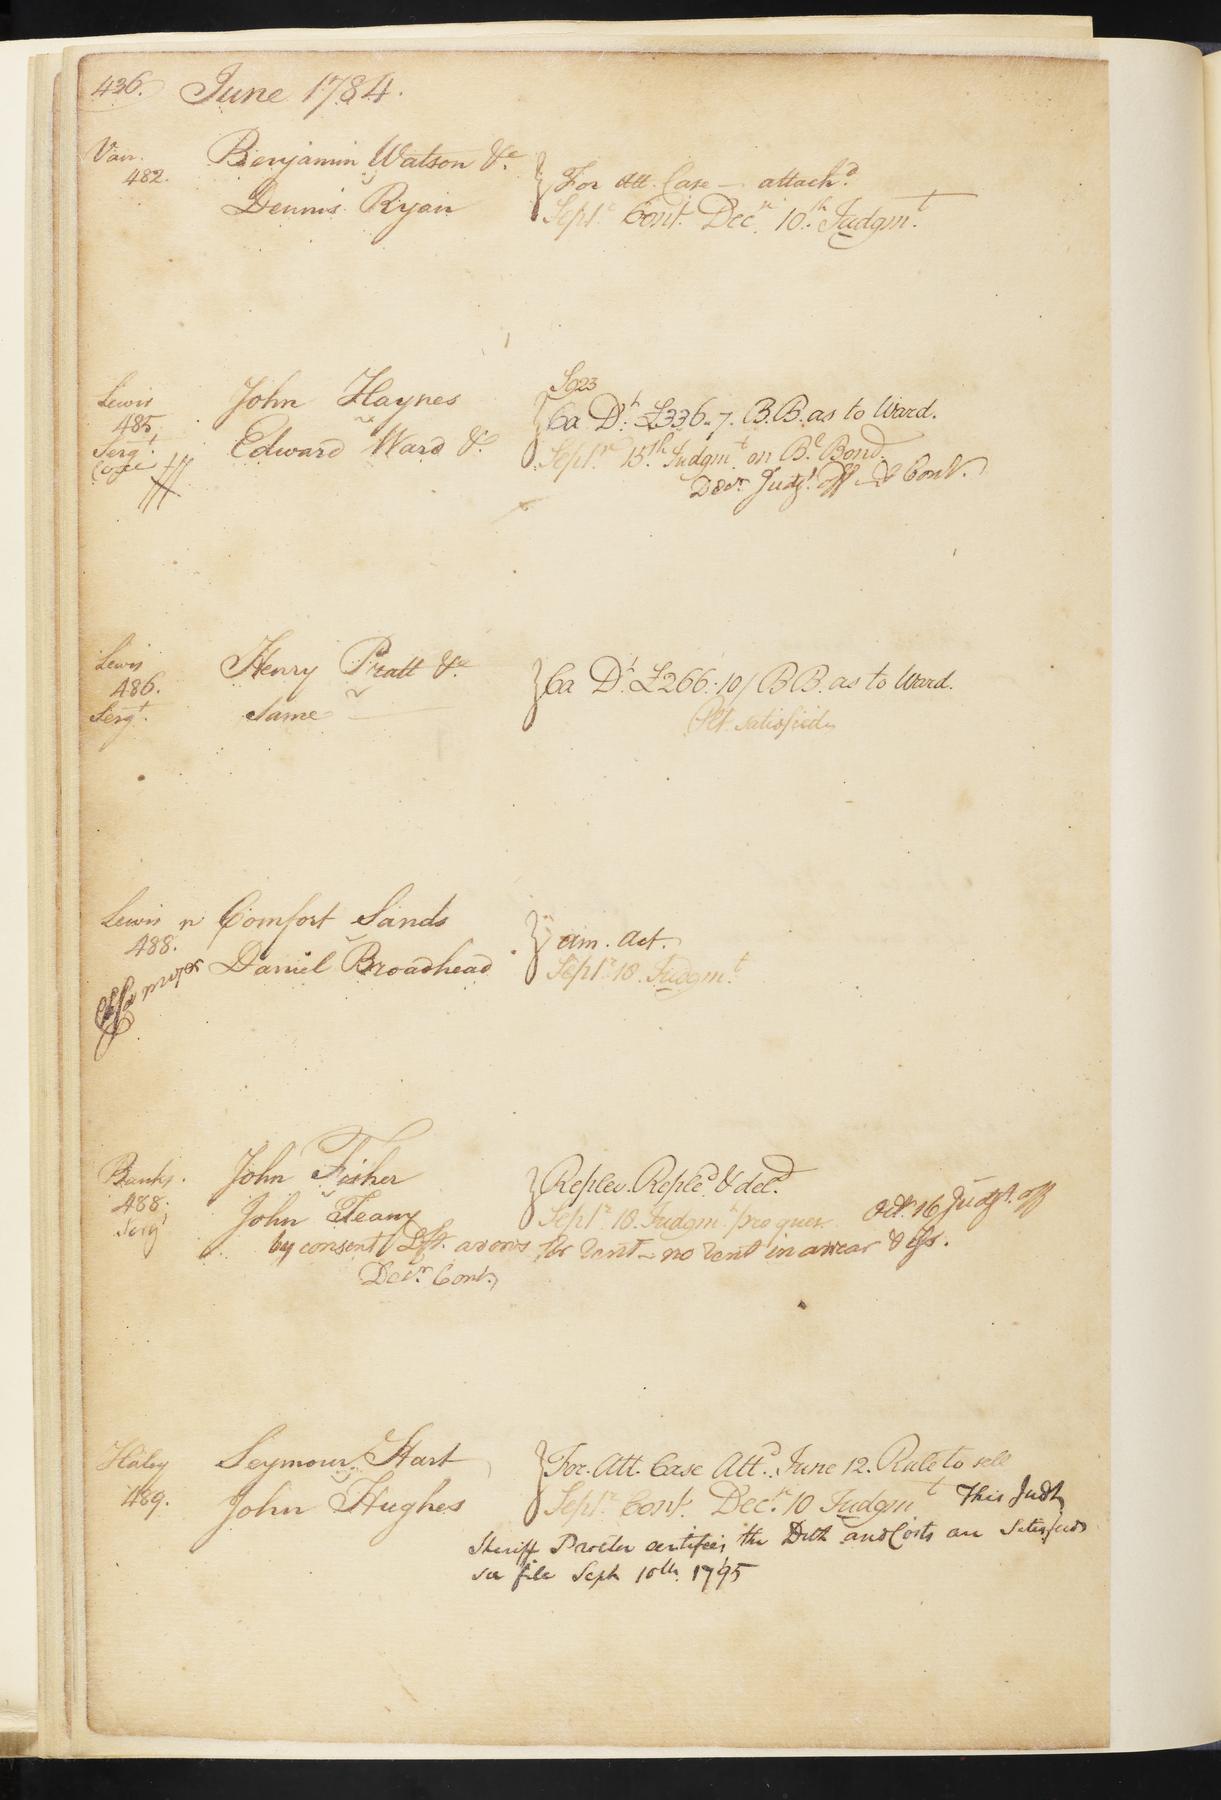 436. June 1784.
Van. Benjamin Watson &c.
482. Dennis Ryan
For Att. Case — attachd.
Septr. Cont. Decr. 10th. Judgmt.
Lewis John Haynes
485. Edward Ward &c.
Sergt.
Ca Dt. £336.. 7. B.B. as to Ward.
Septr. 15th Judgmt. on Bl. Bond
Decr. Judgt. off & Cont.
Lewis Henry Pratt &c.
486.
Sergt. Same
Ca Dt. £266. 10/ B B. as to Ward.
Plt. satisfied
Lewis Comfort Sands
488. Daniel Broadhead
am. act.
Septr. 18. Judgmt.
Banks. John Fisher
488. John Teany
Sergt
Replev. Repled & deld.
Septr. 18. Judgmt. pro quer. Octr. 16 Judgt. off
by consent Deft. avows for rent — no rent in arrear & Iss.
Decr. Cont.
Haley Seymour Hart
489. John Hughes
For. Att. Case Attd. June 12. Rule to sell
Septr. Cont. Decr. 10 Judgmt This Judt
Sheriff Procter certifies the Debt and Costs are Satisfied
see file Sept 10th. 1795